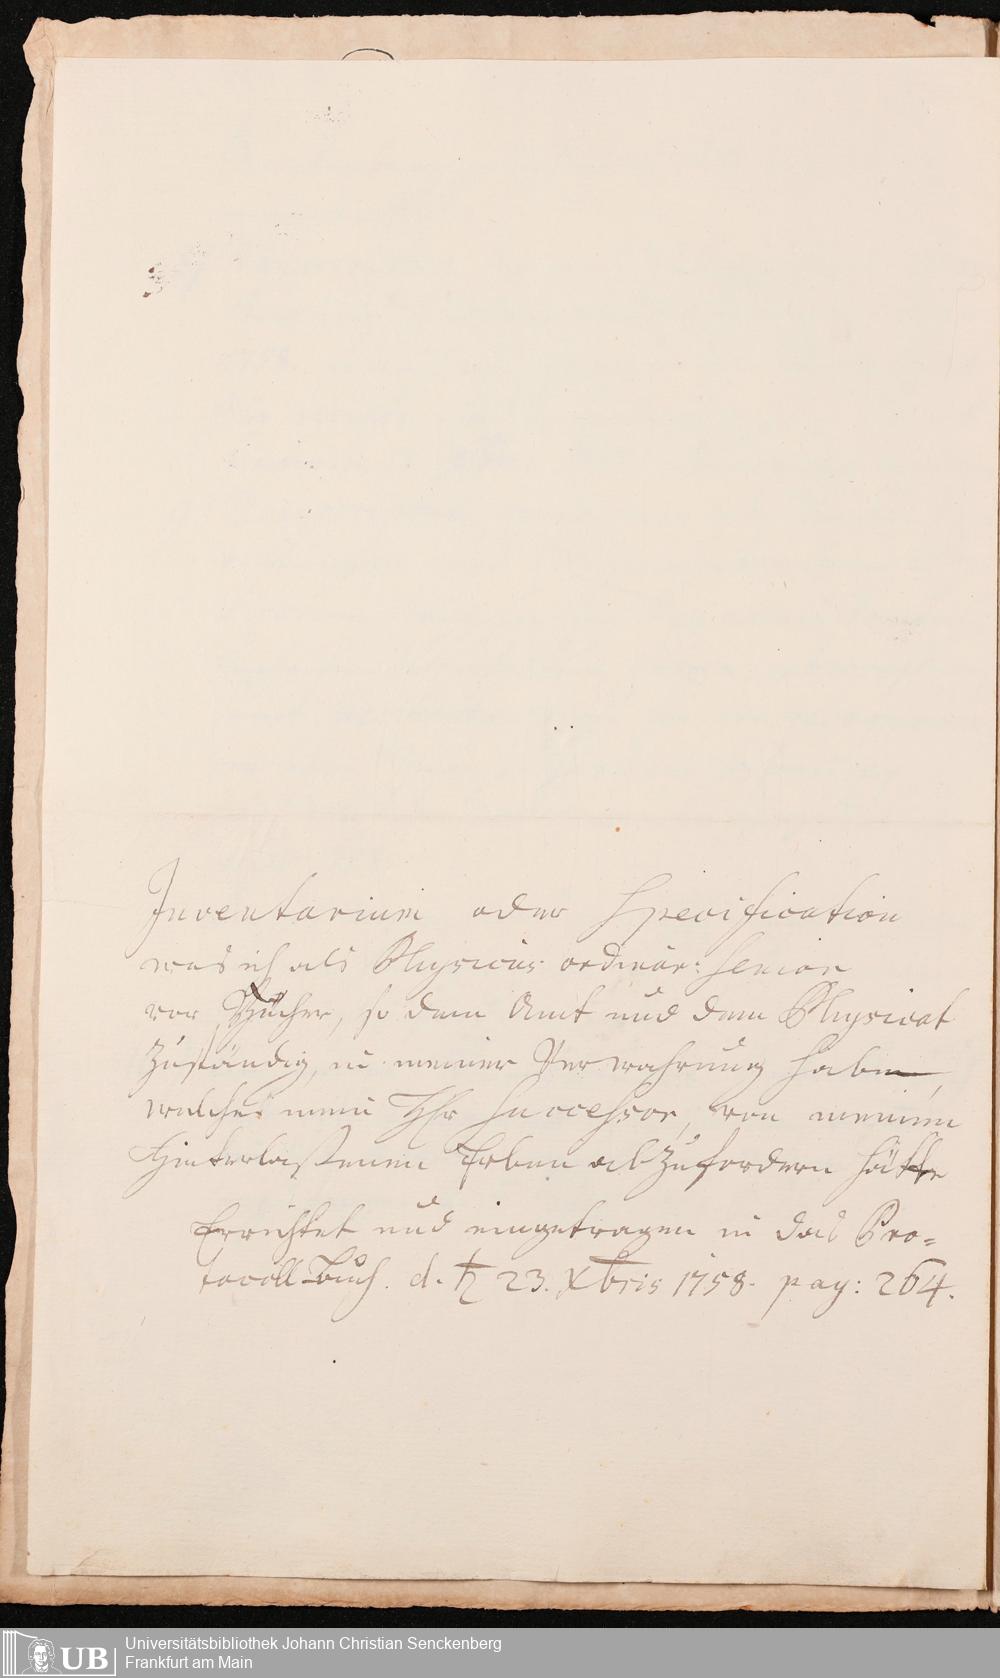 Inventarium oder Specification
was ich als Physicus ordinar: senior
vor Bücher, so dem Amt und dem Physicat
zuständig, in meiner Verwahrung habe,
welches mein Hr Successor, von meinen
Hinterlaßenen Erben abzufordern hätte
Errichtet und eingetragen in das Pro=
tocoll Buch. d. ♄ 23. Xbris 1758. pag: 264.
Universitätsbibliothek Johann Christian Senckenberg
Frankfurt am Main
UB